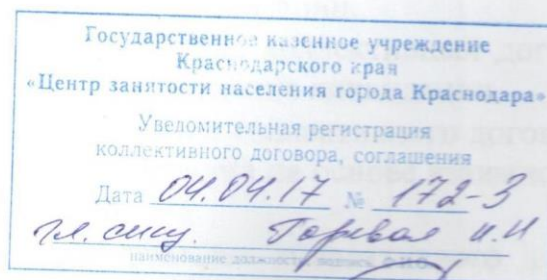 Государственное казенное учреждение
Краснодарского края
«Центр занятости населения города Краснодара»
Уведомительная регистрация
коллективного договора, соглашения
Дата 04.04.17 № 172-3
гл. спец. Горевая И.И
наименование должности, подпись, ФИО